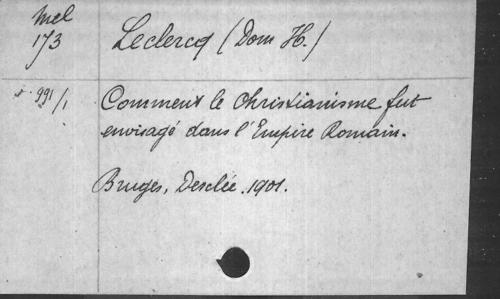 Mel
173
Leclercq (Dom H.)
991/1
Comment le Christianisme fut
envisagé dans l'Empire Romain.
Bruges, Desclée. 1901.